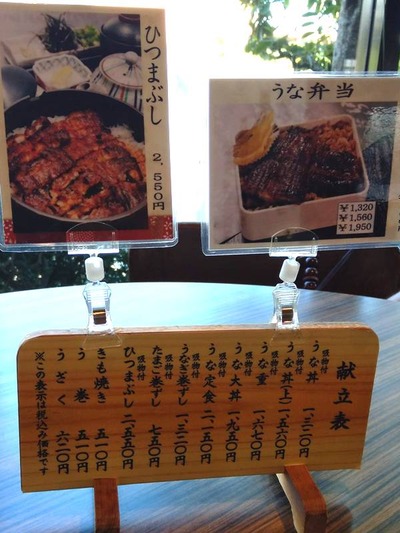 ひつまぶし
2,550円
うな弁当
¥1,320
¥1,560
¥1,950
献立表
吸物付
うな丼 一、三二〇円
吸物付
うな丼(上) 一、五六〇円
吸物付
うな重 一、六七〇円
吸物付
うな大丼 一、九五〇円
吸物付
うな定食 二、一五〇円
吸物付
うなぎ巻ずし 一、三二〇円
吸物付
たまご巻ずし 七五〇円
ひつまぶし 二、五五〇円
きも焼き 五一〇円
う巻 五一〇円
うざく 六二〇円
※この表示は税込み価格です